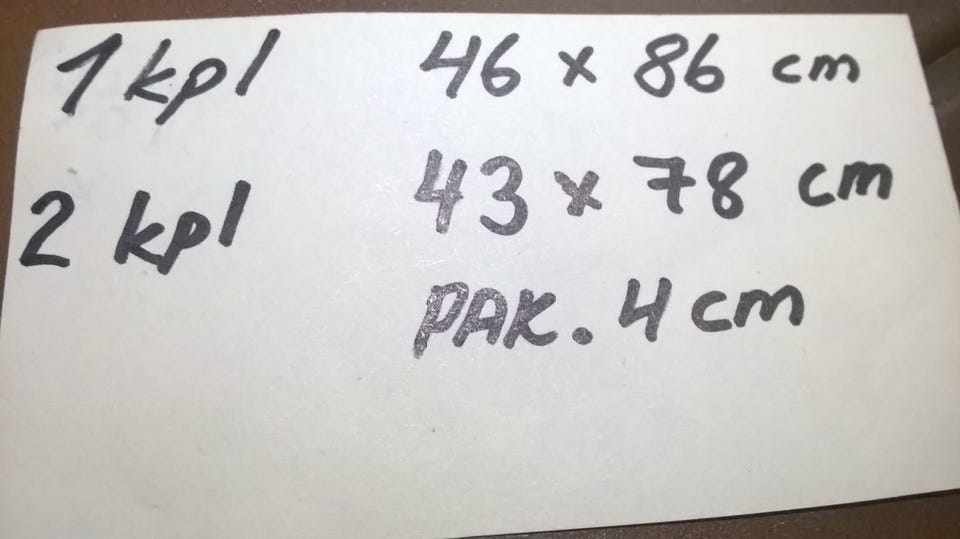 1 kpl 46 x 86 cm
2 kpl 43 x 78 cm
PAK. 4 cm